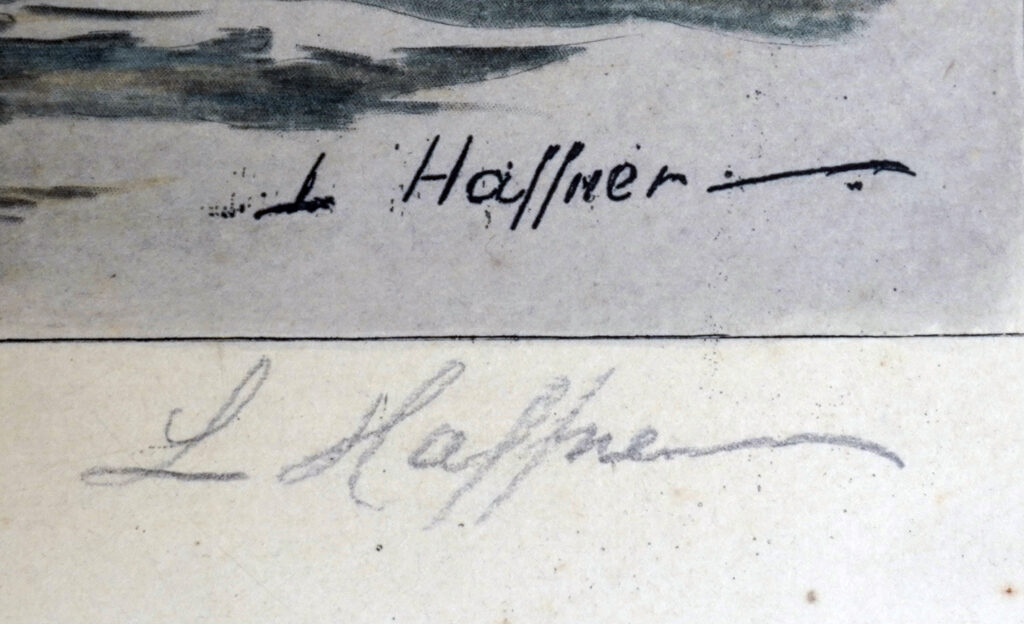 L Haffner
L Haffner